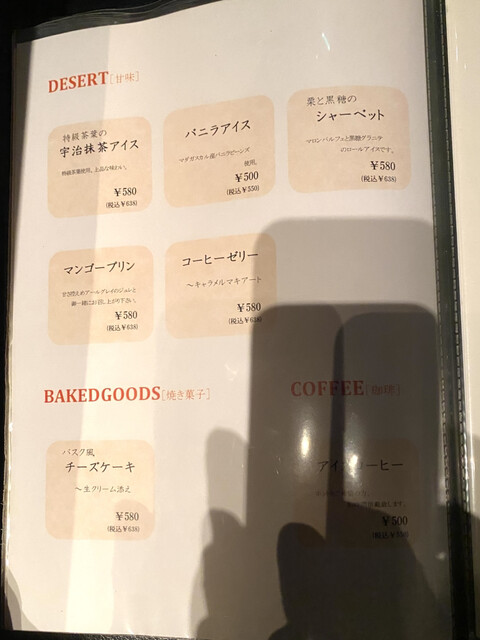 DESERT[甘味]
特級茶葉の
宇治抹茶アイス
特級茶葉使用。上品な味わい。
￥580
(税込￥638)
バニラアイス
マダガスカル産バニラビーンズ
使用。
￥500
(税込￥550)
栗と黒糖の
シャーベット
マロンパルフェと黒糖グラニテ
のロールアイスです。
￥580
(税込￥638)
マンゴープリン
甘さ控えめアールグレイのジュレと
御一緒にお召し上がり下さい。
￥580
(税込￥638)
コーヒーゼリー
～キャラメルマキアート
￥580
(税込￥638)
BAKEDGOODS[焼き菓子]
バスク風
チーズケーキ
～生クリーム添え
￥580
(税込￥638)
COFFEE[珈琲]
アイスコーヒー
￥500
(税込￥550)